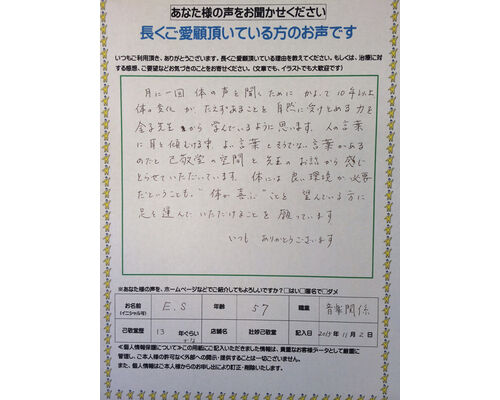 あなた様の声をお聞かせください
長くご愛顧頂いている方のお声です
いつもご利用頂き、ありがとうございます。長くご愛顧頂いている理由を教えてください。もしくは、治療に対
する感想、ご要望などお気づきのことをお寄せください。(文章でも、イラストでも大歓迎です)
月に一回 体の声を聞くために かよって 10年以上
体の変化 が たえずあることを 自然に受けとめる力を
金子先生 から 学んでいるように思います. 人の言葉
に耳を傾ける中 よい言葉と そうでない言葉がある
のだと 己敬堂の空間と 先生のお話から 感じ
とらせていただいています. 体には 良い環境が 必要
だということも. "体が喜ぶ"ことを 望んでいる方に
足を運んで いただけることを 願っています
いつも ありがとうございます
※あなた様の声を、ホームページなどでご紹介してもよろしいですか?□はい□匿名で□ダメ
お名前 E.S 年齢 57 職業 音楽関係
(イニシャル可)
己敬堂歴 13 年ぐらい 店舗名 己敬堂 記入日 2015年11月2日
≪個人情報保護について≫この用紙にご記入いただきました情報は、貴重なお客様データとして厳重に
管理し、ご本人様の許可なく外部への開示・提供することは一切ございません。
また、個人情報はご本人様からのお申し出により訂正・削除いたします。